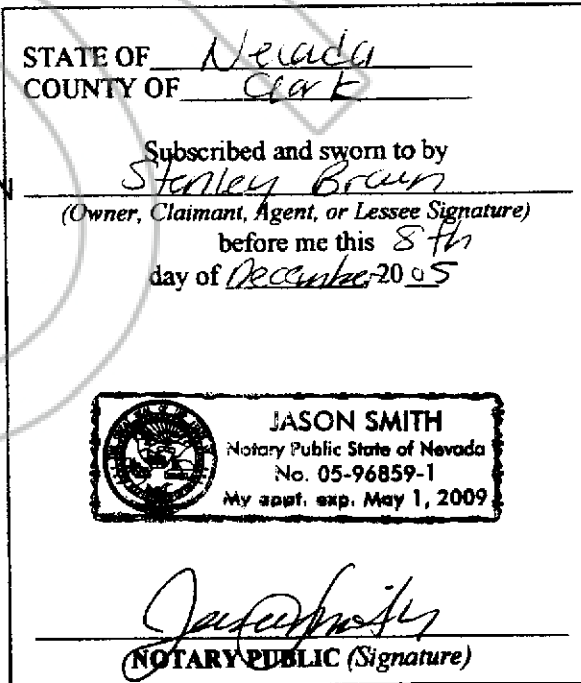 STATE OF Nevada
COUNTY OF Clark
Subscribed and sworn to by
Stanley Braun
(Owner, Claimant, Agent, or Lessee Signature)
before me this 8th
day of December 2005
JASON SMITH
Notary Public State of Nevada
No. 05-96859-1
My appt. exp. May 1, 2009
NOTARY PUBLIC (Signature)